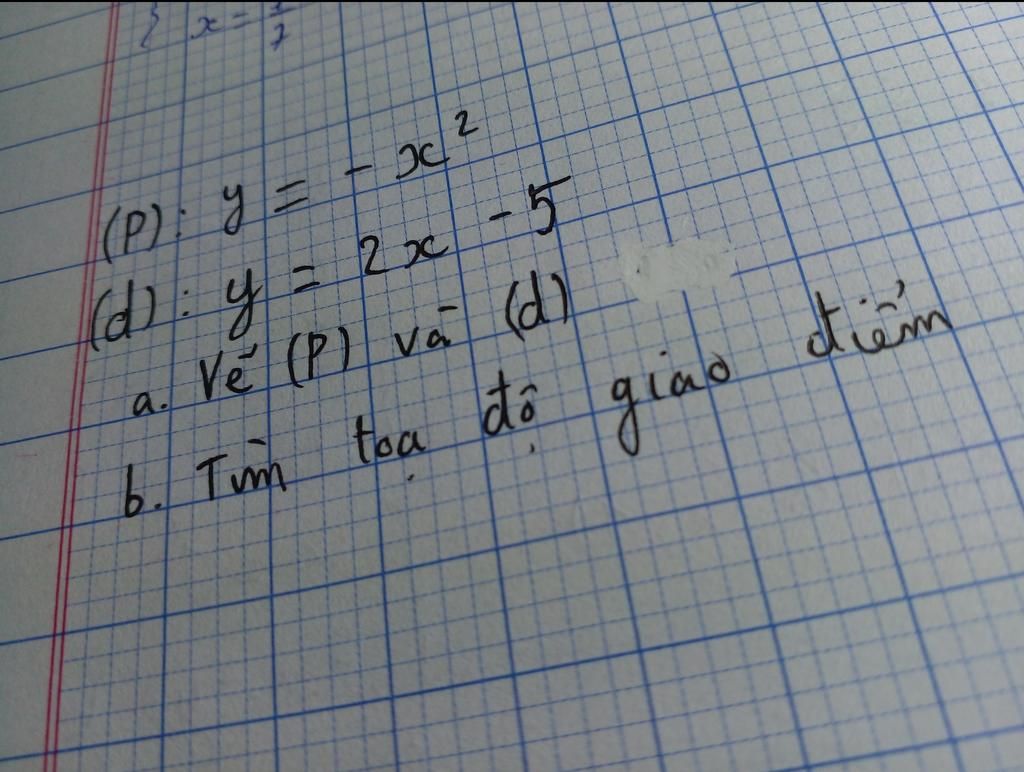 x =
(P): y = - x²
(d): y = 2x - 5
a. Vẽ (P) và (d)
b. Tìm tọa độ giao điểm